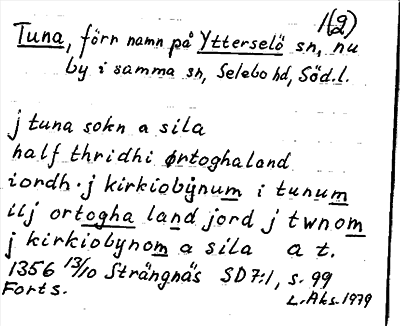 1(2)
Tuna, förr namn på Ytterselö sn, nu
by i samma sn, Selebo hd, Söd.l.
j tuna sokn a sila
half thridhi ørtoghaland
iordh. j kirkiobÿnum i tunum
iij ortogha land jord j twnom
j kirkiobynom a sila a t.
1356 13/10 Strängnäs SD7:1, s. 99
Forts. L.Aks. 1979